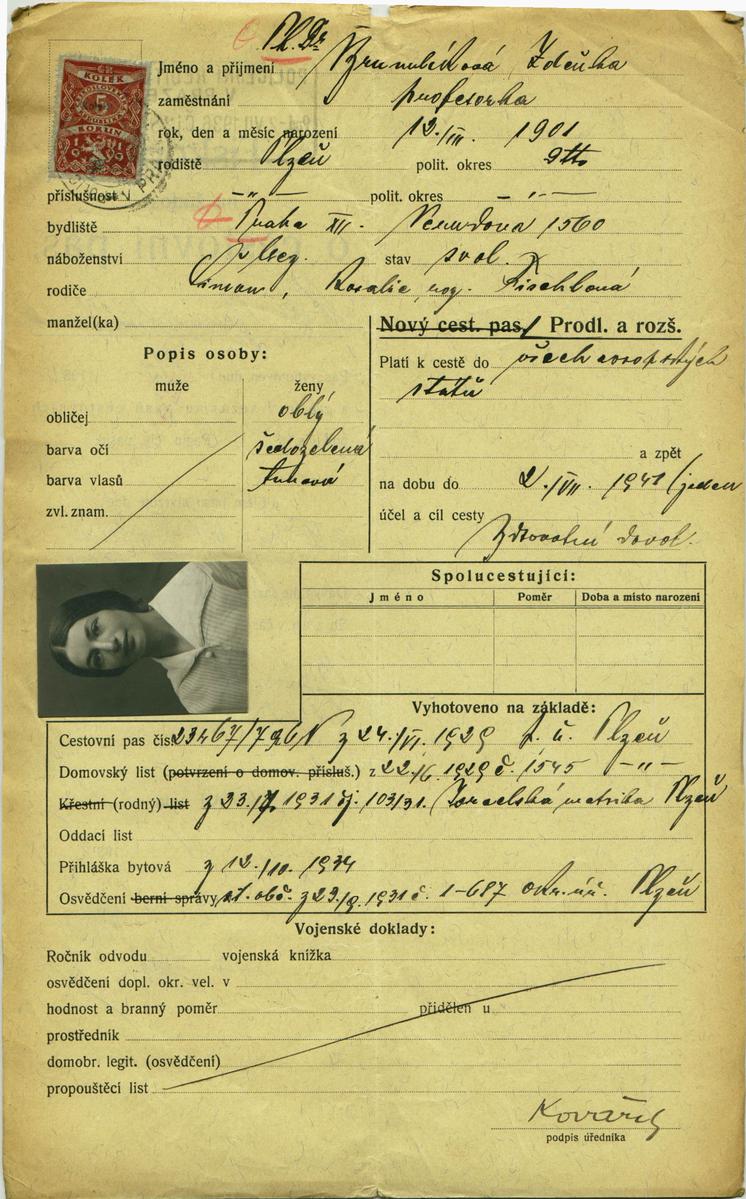 Ph. Dr
KOLEK
5
KORUN
Jméno a příjmení Zdeňka
zaměstnání profesorka
rok, den a měsíc narození 12./III. 1901
rodiště Plzeň polit. okres dtto
příslušnost —„— polit. okres —„—
bydliště Praha XII. Nerudova 1560
náboženství stav svob.
rodiče Rosalie, roz. Fischlová
manžel(ka)
Nový cest. pas/ Prodl. a rozš.
Popis osoby:
muže ženy
obličej oblý
barva očí šedozelená
barva vlasů tmavá
zvl. znam.
Platí k cestě do všech evropských
států
a zpět
na dobu do 2./VII. 1941 (jeden
účel a cíl cesty
Zdravotní dovol.
Spolucestující:
Jméno Poměr Doba a místo narození
Vyhotoveno na základě:
Cestovní pas čís. 23467/726/V z 24./VI. 1929 p. ú. Plzeň
Domovský list (potvrzení o domov. přísluš.) z 22./6. 1929 č. 1545 —„—
Křestní (rodný) list z 23./X. 1931 čj. 103/31. Israelská matrika Plzeň
Oddací list
Přihláška bytová z 12./10. 1934
Osvědčení berní správy st. obč. z 23./9. 1931 č. 1-687 okr. úř. Plzeň
Vojenské doklady:
Ročník odvodu vojenská knížka
osvědčení dopl. okr. vel. v
hodnost a branný poměr přidělen u
prostředník
domobr. legit. (osvědčení)
propouštěcí list
Kovařík
podpis úředníka